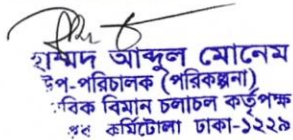 হাম্মদ আব্দুল মোনেম
উপ-পরিচালক (পরিকল্পনা)
বিক বিমান চলাচল কর্তৃপক্ষ
কুর্মিটোলা ঢাকা-১২২৯